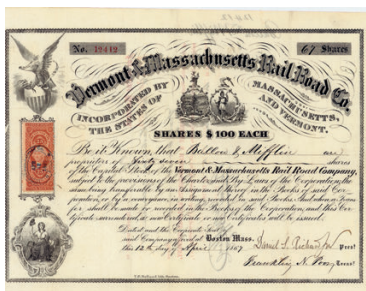 No. 19419
67 Shares
Vermont & Massachusetts Rail Road Co.
INCORPORATED BY
THE STATES OF
MASSACHUSETTS,
AND VERMONT.
SHARES $100 EACH
Be it Known, that Ballou & Mifflin are
proprietors of Sixty seven shares
of the Capital Stock of the Vermont & Massachusetts Rail Road Company,
subject to the provisions of the Charter and Bye Laws of the Corporation, the
same being transferable by an Assignment thereof in the Books of said Cor-
poration, or by a conveyance in writing recorded in said Books. And when a Trans-
fer shall be made or recorded in the Books of the Corporation and this Cer-
tificate surrendered, a new Certificate or new Certificates will be issued.
Dated and the Corporate Seal of
said Company affixed at Boston Mass.
this 12th day of April 1867
Prest
Treasr